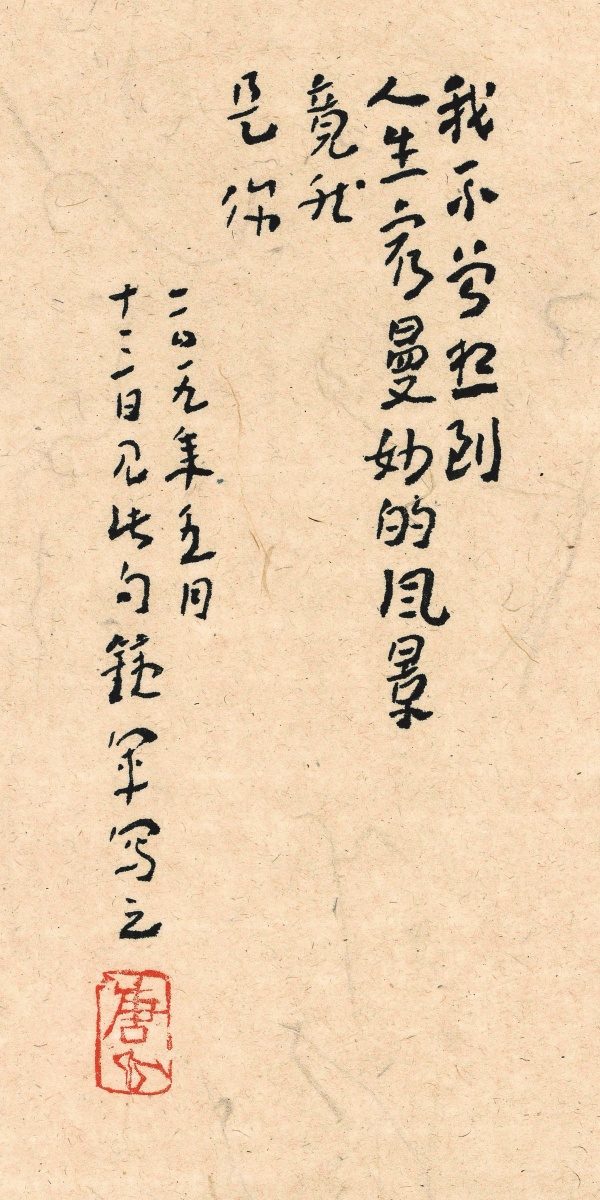 我不曾想到
人生最曼妙的风景
竟然
是你
二〇一九年五月
十三日见此句鐵军写之
唐